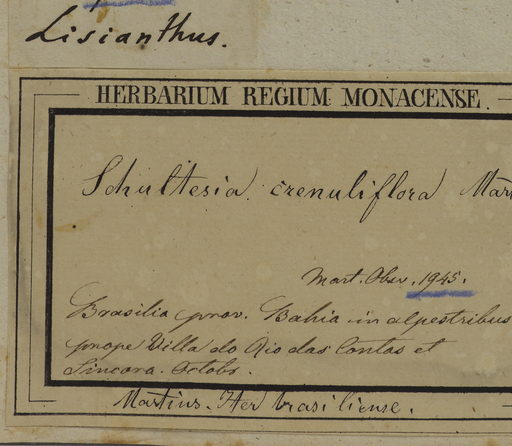 Lisianthus.
HERBARIUM REGIUM MONACENSE.
Schultesia crenuliflora Mart
Mart. Obsv. 1945.
Brasilia prov. Bahia in alpestribus
prope Villa do Rio das Contas et
Sincora. Octobr.
Martius. Iter brasiliense.